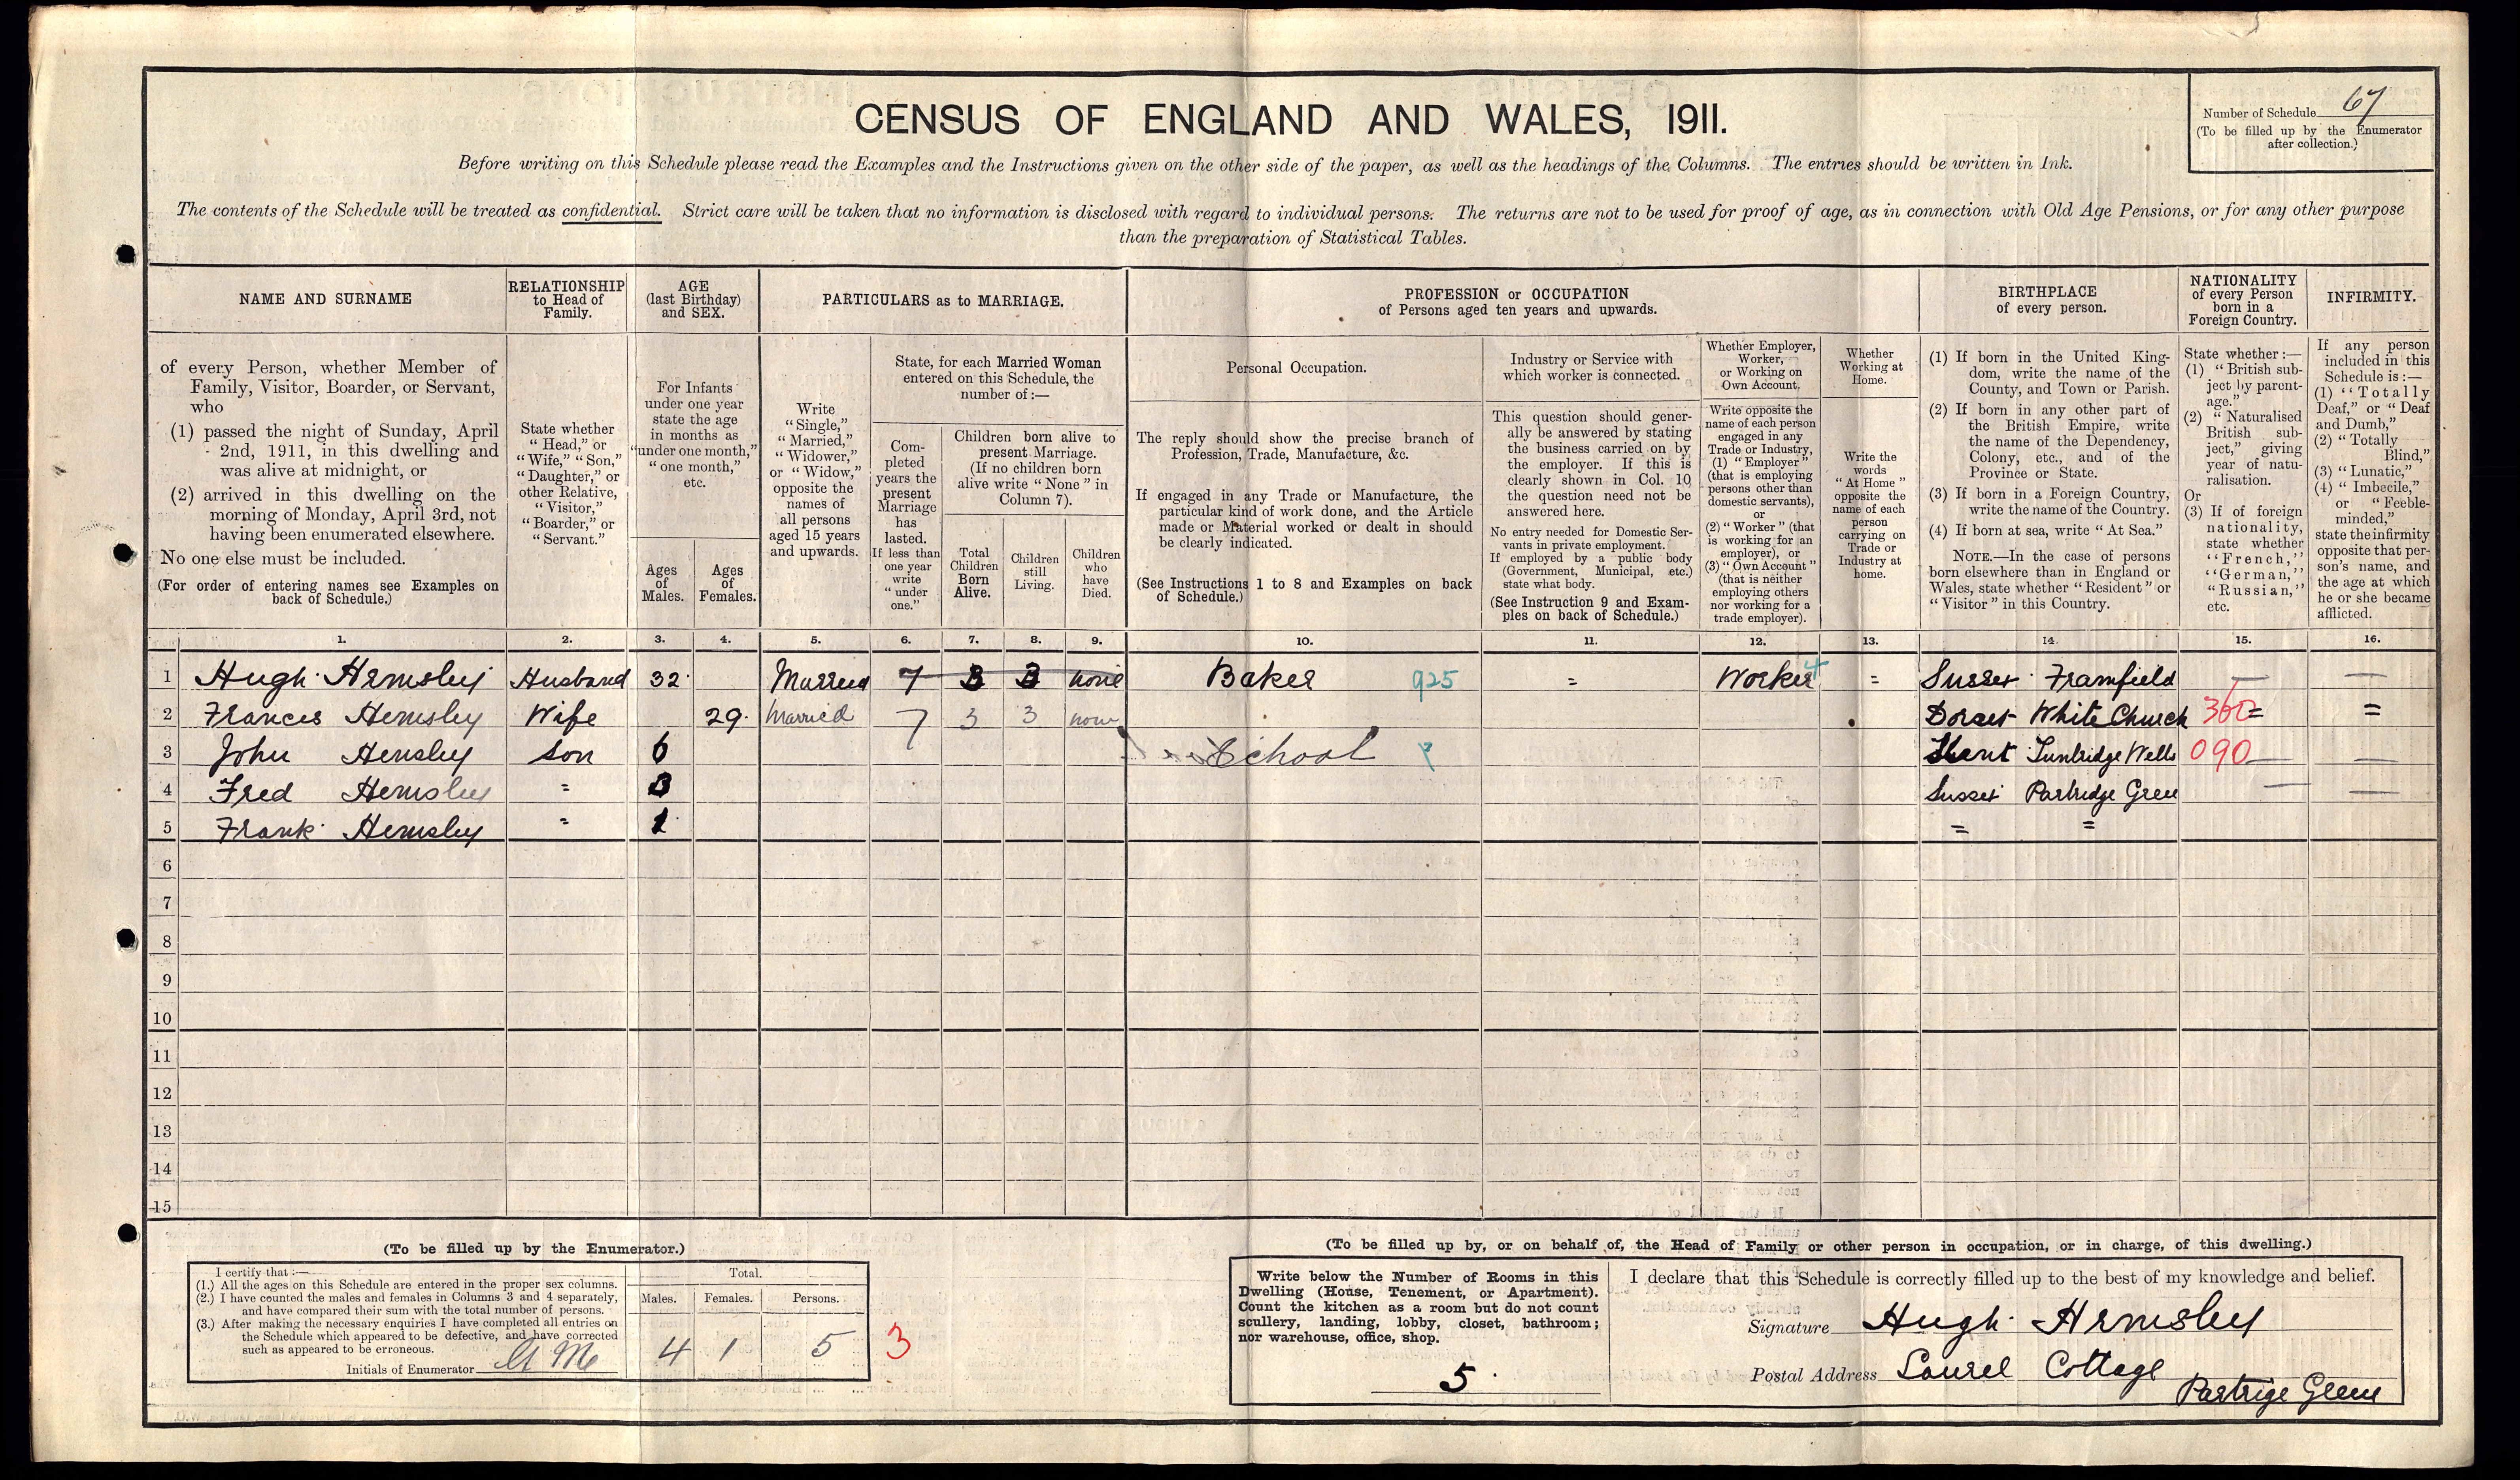 CENSUS OF ENGLAND AND WALES, 1911.
Number of Schedule 67
(To be filled up by the Enumerator
after collection.)
Before writing on this Schedule please read the Examples and the Instructions given on the other side of the paper, as well as the headings of the Columns. The entries should be written in Ink.
The contents of the Schedule will be treated as confidential. Strict care will be taken that no information is disclosed with regard to individual persons. The returns are not to be used for proof of age, as in connection with Old Age Pensions, or for any other purpose
than the preparation of Statistical Tables.
NAME AND SURNAME
of every Person, whether Member of
Family, Visitor, Boarder, or Servant,
who
(1) passed the night of Sunday, April
2nd, 1911, in this dwelling and
was alive at midnight, or
(2) arrived in this dwelling on the
morning of Monday, April 3rd, not
having been enumerated elsewhere.
No one else must be included.
(For order of entering names see Examples on
back of Schedule.)
RELATIONSHIP
to Head of
Family.
State whether
"Head," or
"Wife," "Son,"
"Daughter," or
other Relative,
"Visitor,"
"Boarder," or
"Servant."
AGE
(last Birthday)
and SEX.
For Infants
under one year
state the age
in months as
"under one month,"
"one month,"
etc.
Ages
of
Males.
Ages
of
Females.
PARTICULARS as to MARRIAGE.
Write
"Single,"
"Married,"
"Widower,"
or "Widow,"
opposite the
names of
all persons
aged 15 years
and upwards.
State, for each Married Woman
entered on this Schedule, the
number of:—
Com-
pleted
years the
present
Marriage
has
lasted.
If less than
one year
write
"under
one."
Children born alive to
present Marriage.
(If no children born
alive write "None" in
Column 7).
Total
Children
Born
Alive.
Children
still
Living.
Children
who
have
Died.
PROFESSION or OCCUPATION
of Persons aged ten years and upwards.
Personal Occupation.
The reply should show the precise branch of
Profession, Trade, Manufacture, &c.
If engaged in any Trade or Manufacture, the
particular kind of work done, and the Article
made or Material worked or dealt in should
be clearly indicated.
(See Instructions 1 to 8 and Examples on back
of Schedule.)
Industry or Service with
which worker is connected.
This question should gener-
ally be answered by stating
the business carried on by
the employer. If this is
clearly shown in Col. 10
the question need not be
answered here.
No entry needed for Domestic Ser-
vants in private employment.
If employed by a public body
(Government, Municipal, etc.)
state what body.
(See Instruction 9 and Exam-
ples on back of Schedule.)
Whether Employer,
Worker,
or Working on
Own Account.
Write opposite the
name of each person
engaged in any
Trade or Industry,
(1) "Employer"
(that is employing
persons other than
domestic servants),
or
(2) "Worker" (that
is working for an
employer), or
(3) "Own Account"
(that is neither
employing others
nor working for a
trade employer).
Whether
Working at
Home.
Write the
words
"At Home"
opposite the
name of each
person
carrying on
Trade or
Industry at
home.
BIRTHPLACE
of every person.
(1) If born in the United King-
dom, write the name of the
County, and Town or Parish.
(2) If born in any other part of
the British Empire, write
the name of the Dependency,
Colony, etc., and of the
Province or State.
(3) If born in a Foreign Country,
write the name of the Country.
(4) If born at sea, write "At Sea."
NOTE.—In the case of persons
born elsewhere than in England or
Wales, state whether "Resident" or
"Visitor" in this Country.
NATIONALITY
of every Person
born in a
Foreign Country.
State whether:—
(1) "British sub-
ject by parent-
age."
(2) "Naturalised
British sub-
ject," giving
year of natu-
ralisation.
Or
(3) If of foreign
nationality,
state whether
"French,"
"German,"
"Russian,"
etc.
INFIRMITY.
If any person
included in this
Schedule is:—
(1) "Totally
Deaf," or "Deaf
and Dumb,"
(2) "Totally
Blind,"
(3) "Lunatic,"
(4) "Imbecile,"
or "Feeble-
minded,"
state the infirmity
opposite that per-
son's name, and
the age at which
he or she became
afflicted.
1. 2. 3. 4. 5. 6. 7. 8. 9. 10. 11. 12. 13. 14. 15. 16.
1 Hugh Hemsley Husband 32 Married 7 3 3 none Baker 925 = Worker 4 = Sussex Framfield — —
2 Frances Hemsley Wife 29 Married 7 3 3 none Dorset White Church 360 = =
3 John Hemsley Son 6 School Kent Tunbridge Wells 090 — —
4 Fred Hemsley = 3 Sussex Partridge Green — —
5 Frank Hemsley = 1 = =
6
7
8
9
10
11
12
13
14
15
(To be filled up by the Enumerator.)
I certify that:—
(1.) All the ages on this Schedule are entered in the proper sex columns.
(2.) I have counted the males and females in Columns 3 and 4 separately,
and have compared their sum with the total number of persons.
(3.) After making the necessary enquiries I have completed all entries on
the Schedule which appeared to be defective, and have corrected
such as appeared to be erroneous.
Initials of Enumerator
Total.
Males. Females. Persons.
4 1 5 3
(To be filled up by, or on behalf of, the Head of Family or other person in occupation, or in charge, of this dwelling.)
Write below the Number of Rooms in this
Dwelling (House, Tenement, or Apartment).
Count the kitchen as a room but do not count
scullery, landing, lobby, closet, bathroom;
nor warehouse, office, shop.
5
I declare that this Schedule is correctly filled up to the best of my knowledge and belief.
Signature Hugh Hemsley
Postal Address Laurel Cottage
Partrige Green